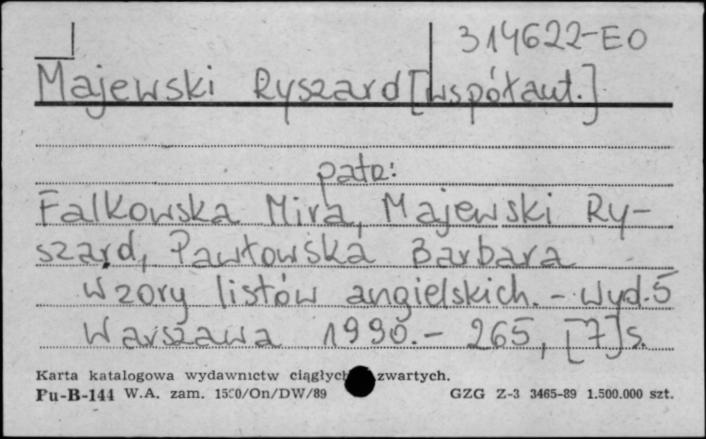 314622-EO
Majewski Ryszard [współaut.]
patrz:
Falkowska Mira, Majewski Ry-
szard, Pawłowska Barbara
Wzory listów angielskich. - Wyd. 5
Warszawa 1990. - 265, [7] s.
Karta katalogowa wydawnictw ciągłych zwartych.
Pu-B-144 W.A. zam. /On/DW/89 GZG Z-3 3465-89 1.500.000 szt.